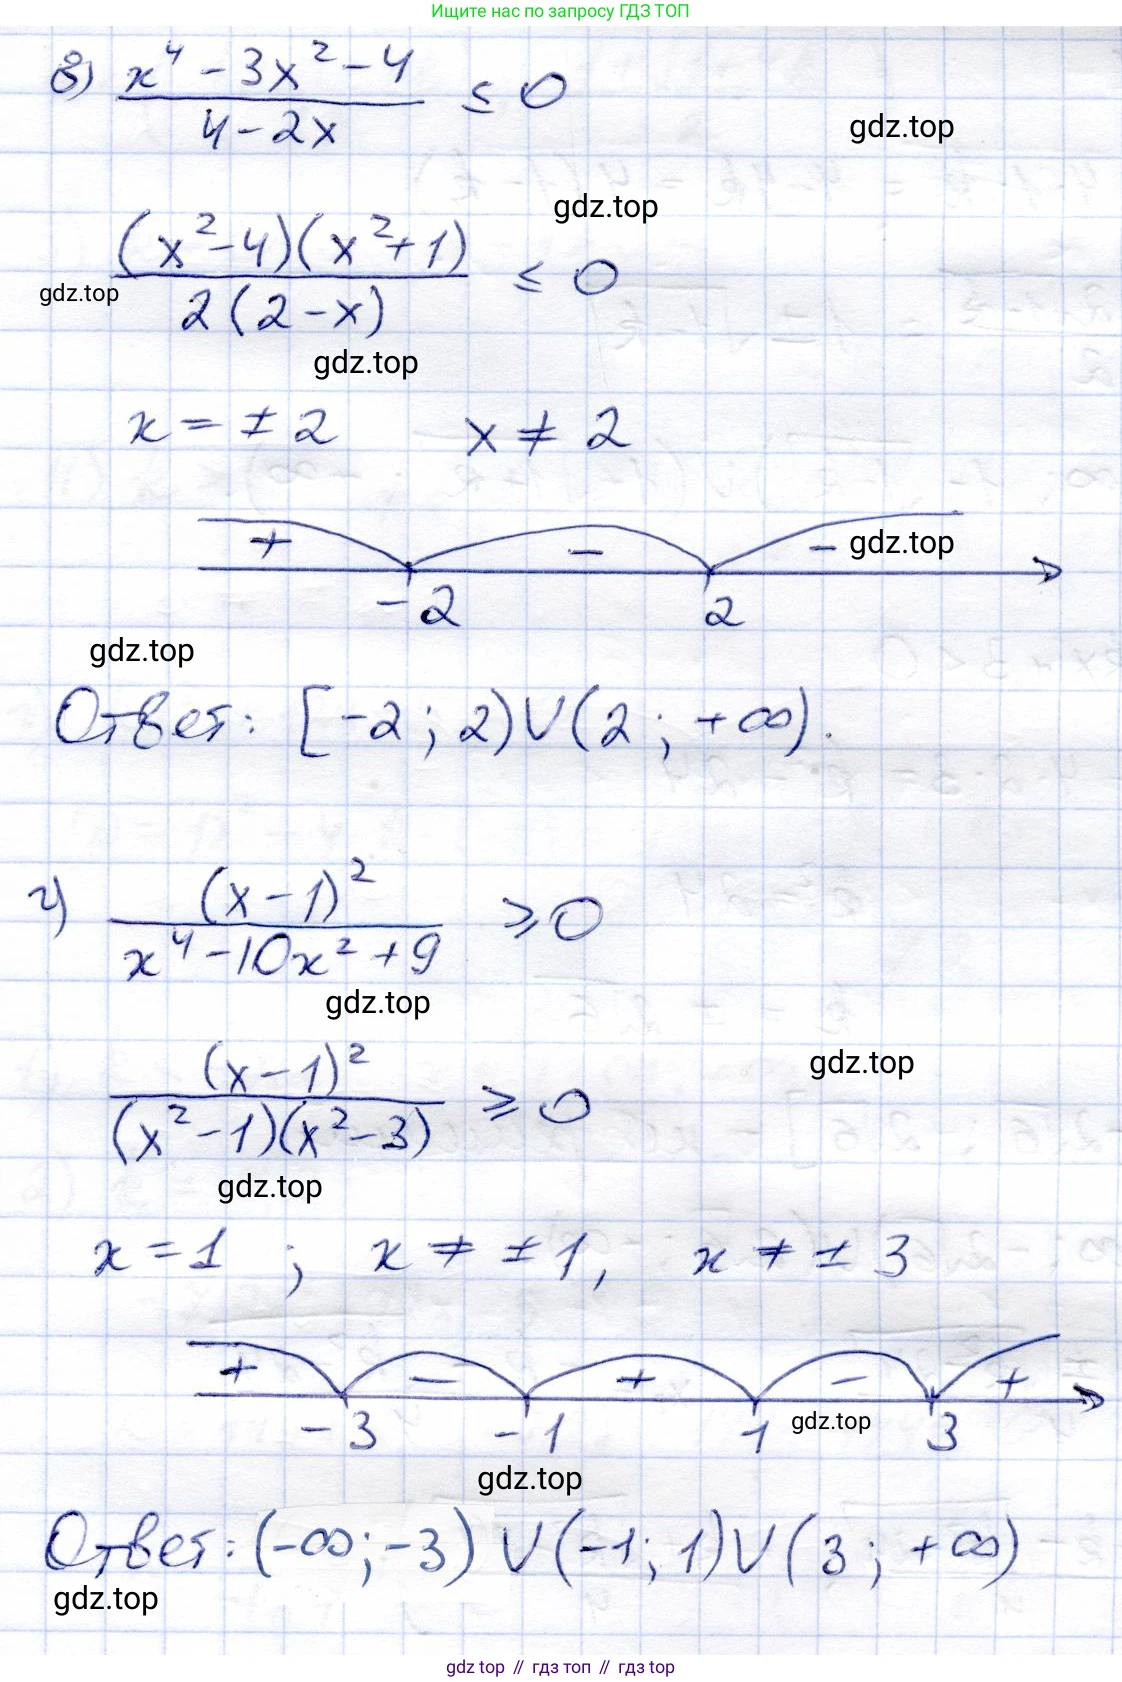 Ищите нас по запросу ГДЗ ТОП
в) (x⁴ - 3x² - 4)/(4 - 2x) ≤ 0
gdz.top
gdz.top
((x² - 4)(x² + 1))/(2(2 - x)) ≤ 0
gdz.top
gdz.top
x = ±2 x ≠ 2
+ - - gdz.top
-2 2
gdz.top
Ответ: [-2; 2) ∪ (2; +∞).
г) (x - 1)²/(x⁴ - 10x² + 9) ≥ 0
gdz.top
gdz.top
(x - 1)²/((x² - 1)(x² - 3)) ≥ 0
gdz.top
x = 1; x ≠ ±1, x ≠ ±3
+ - + - +
-3 -1 1 gdz.top 3
gdz.top
Ответ: (-∞; -3) ∪ (-1; 1) ∪ (3; +∞)
gdz.top
gdz top // гдз топ // гдз top